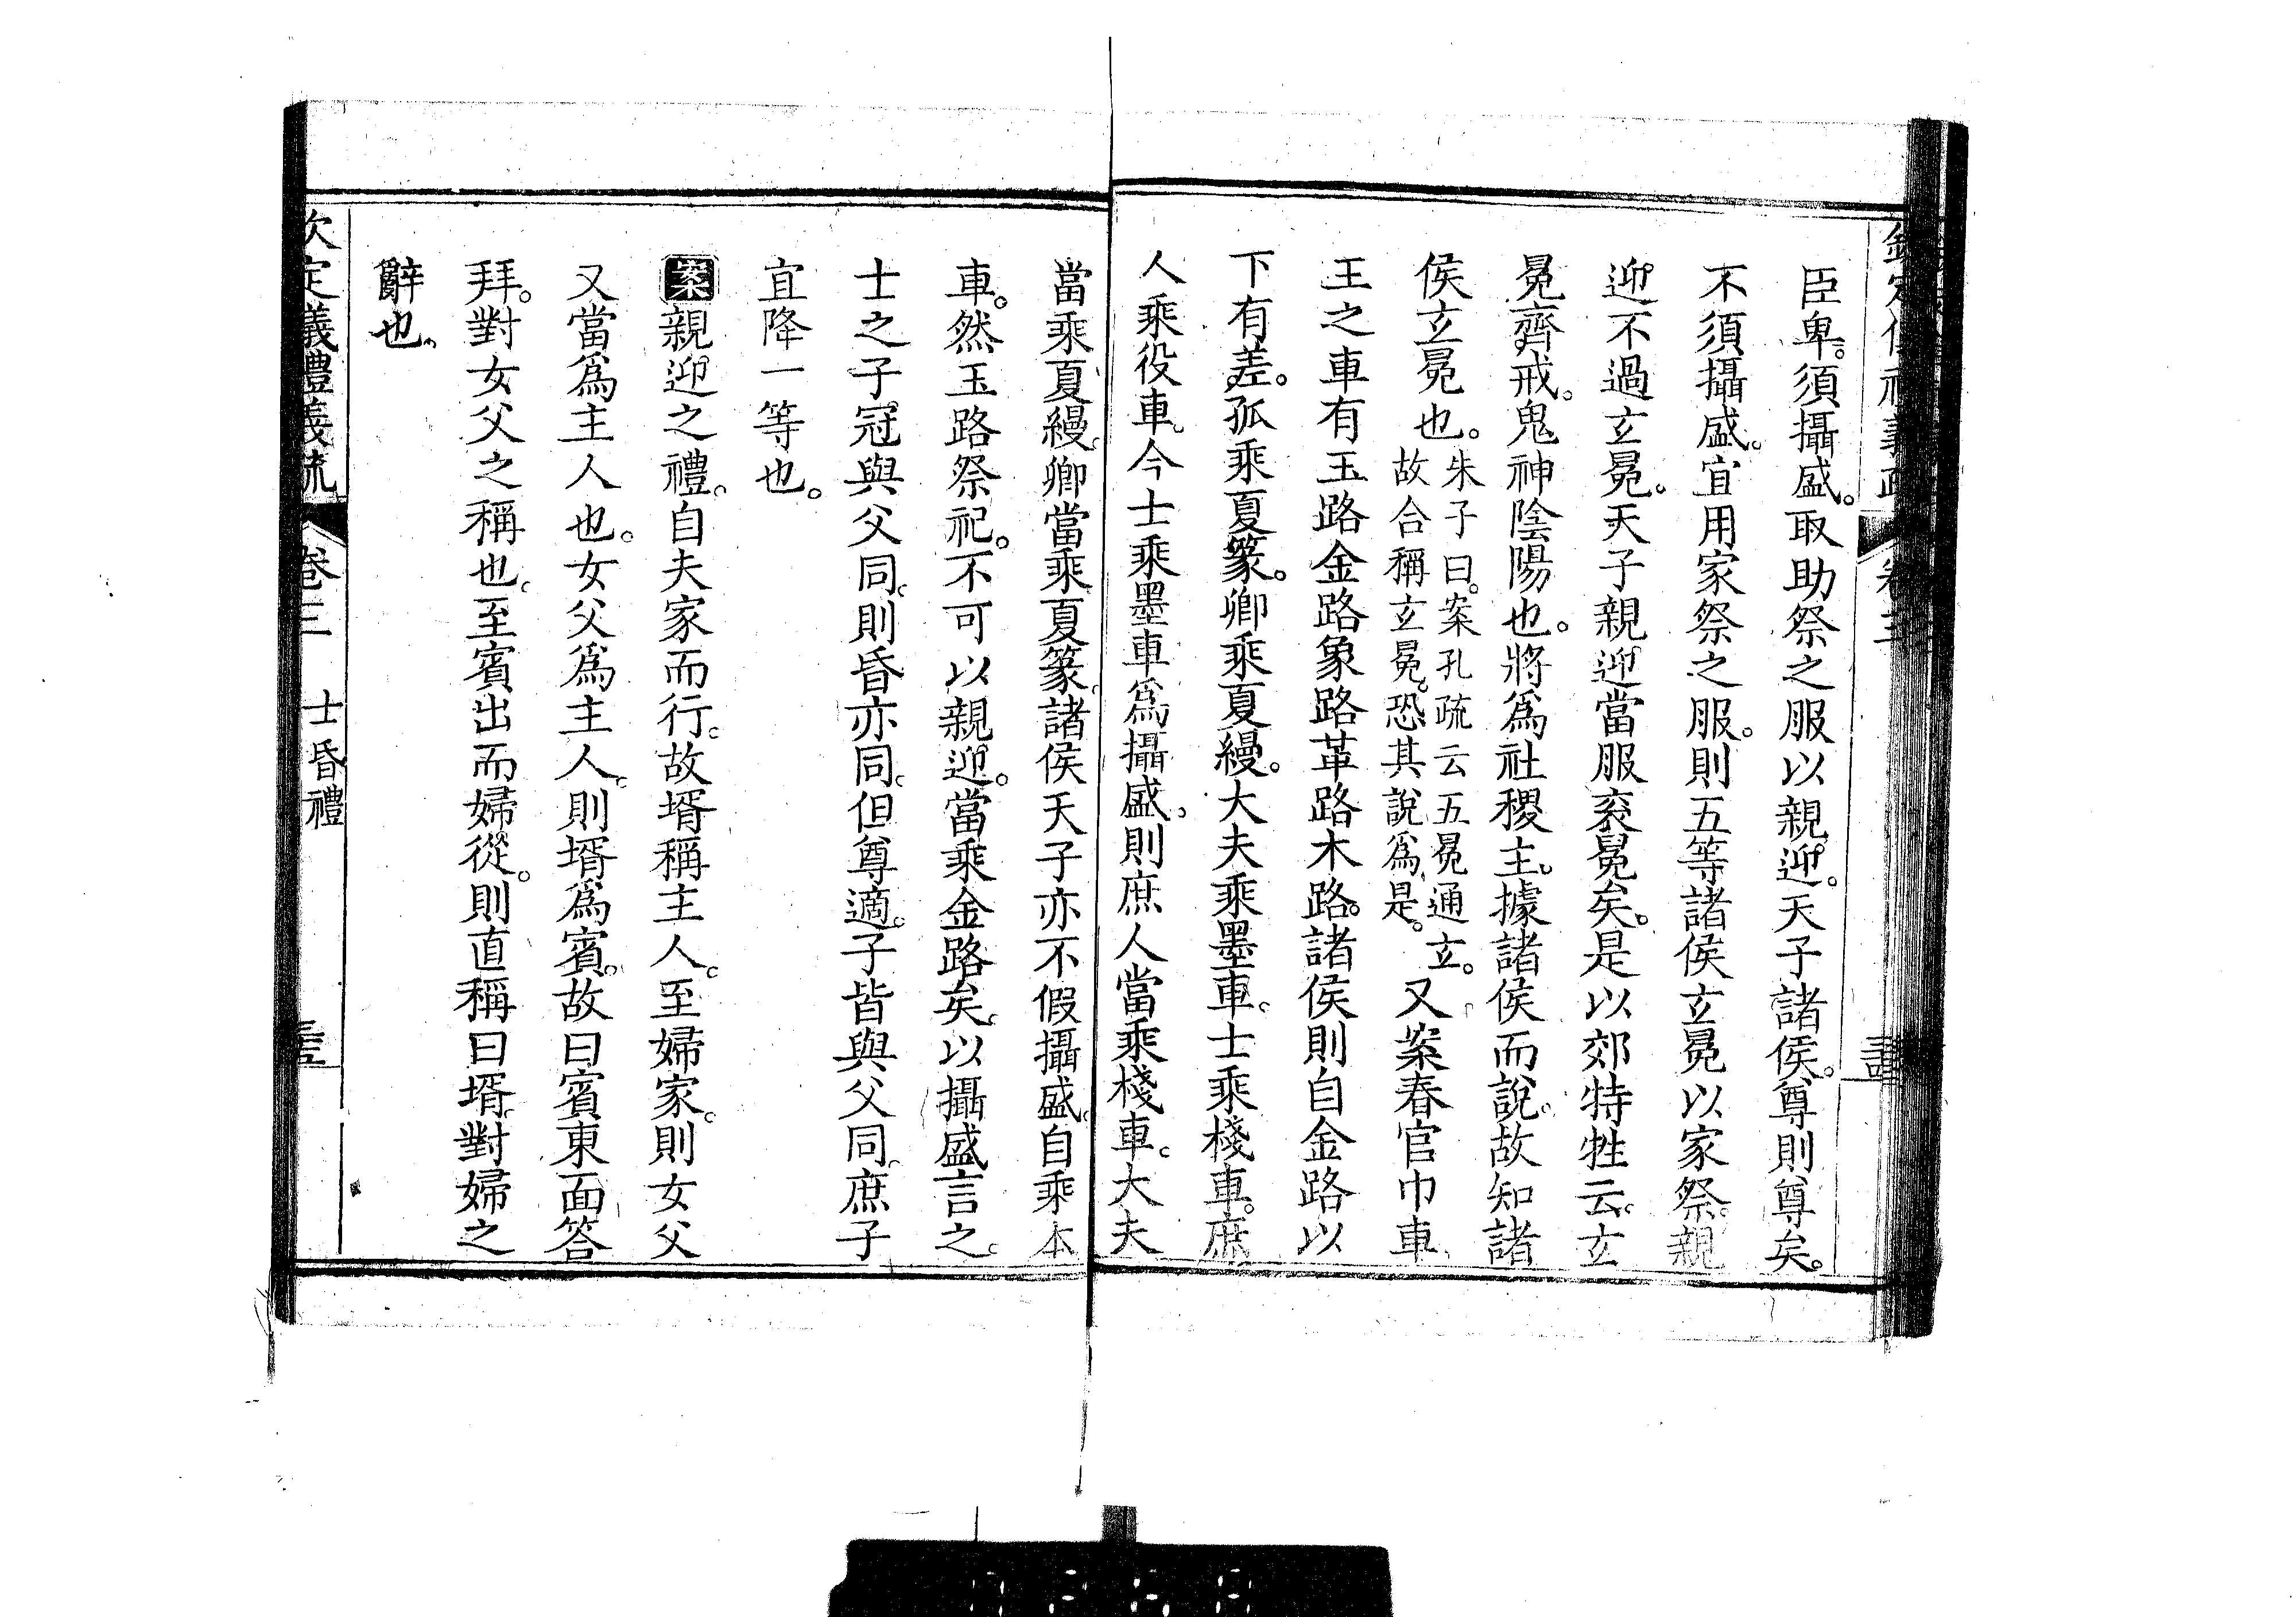 臣卑。須攝盛。取助祭之服以親迎。天子諸侯。尊則尊矣。
不須攝盛。宜用家祭之服。則五等諸侯玄冕以家祭。親
迎不過玄冕。天子親迎當服衮冕矣。是以郊特牲云。玄
冕齊戒。鬼神陰陽也。將爲社稷主。據諸侯而說。故知諸
侯玄冕也。朱子曰。案孔疏云五冕通玄。故合稱玄冕。恐其說爲是。又案春官巾車
王之車有玉路金路象路革路木路。諸侯則自金路以
下有差。孤乘夏篆。卿乘夏縵。大夫乘墨車。士乘棧車。庶
人乘役車。今士乘墨車爲攝盛。則庶人當乘棧車。大夫
當乘夏縵。卿當乘夏篆。諸侯天子亦不假攝盛。自乘本
車。然玉路祭祀。不可以親迎。當乘金路矣。以攝盛言之。
士之子冠與父同。則昏亦同。但尊適。子皆與父同。庶子
宜降一等也。
案親迎之禮。自夫家而行。故壻稱主人。至婦家。則女父
又當爲主人也。女父爲主人。則壻爲賓。故曰賓東面答
拜。對女父之稱也。至賓出而婦從。則直稱曰壻。對婦之
辭也。
欽定儀禮義疏 卷三 士昏禮